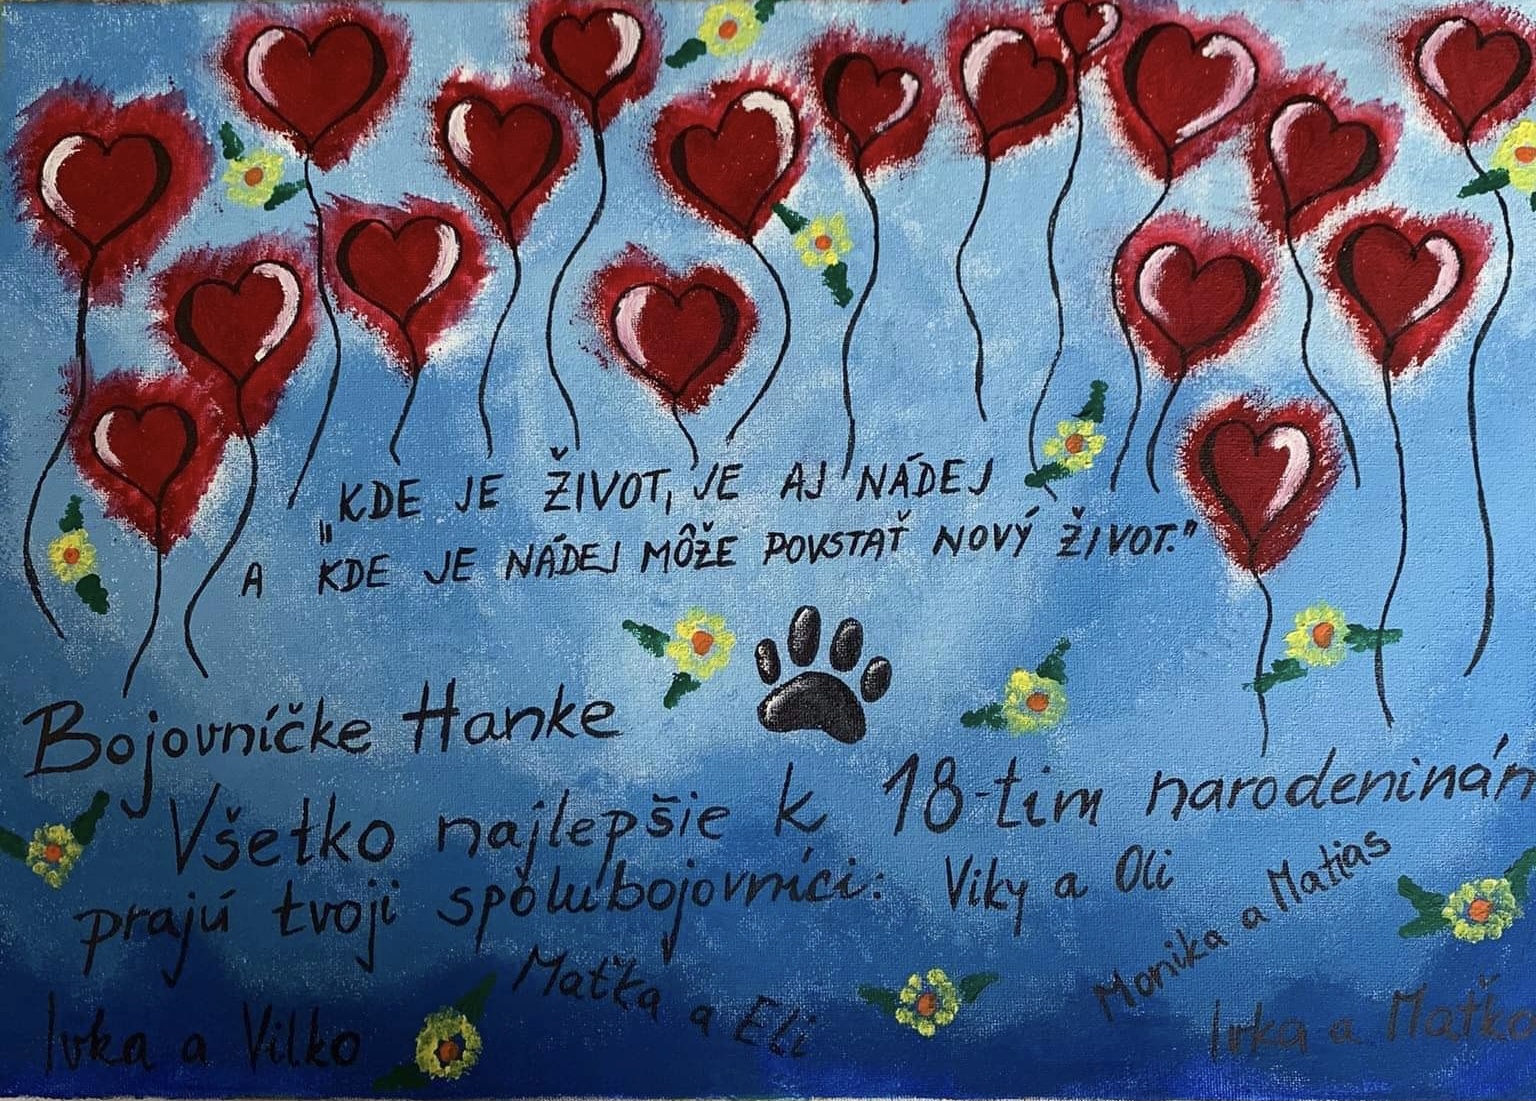 „KDE JE ŽIVOT, JE AJ NÁDEJ
A KDE JE NÁDEJ MÔŽE POVSTAŤ NOVÝ ŽIVOT."
Bojovníčke Hanke
Všetko najlepšie k 18-tim narodeninám
prajú tvoji spolubojovníci: Viky a Oli
Monika a Matias
Maťka a Eli
Ivka a Vilko
Ivka a Maťko